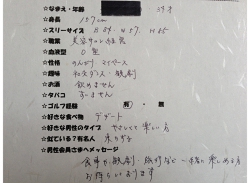 ☆なまえ・年齢 39才
☆身長 157cm
☆スリーサイズ B 84・W 57・H 85
☆職業 美容サロン経営
☆血液型 O型
☆性格 のんびり マイペース
☆趣味 社交ダンス・観劇
☆お酒 飲めません
☆タバコ すいません
☆ゴルフ経験 有・無
☆好きな食べ物 デザート
☆好きな男性のタイプ やさしくて楽しい方
☆似ている?有名人
☆男性会員さまへメッセージ
食事や観劇・旅行など一緒に楽しめる方
お待ちしております